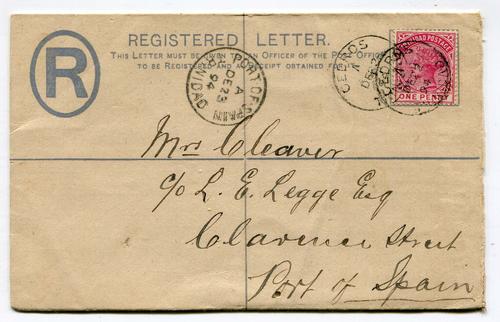 REGISTERED LETTER.
THIS LETTER MUST BE GIVEN TO AN OFFICER OF THE POST OFFICE
TO BE REGISTERED AND A RECEIPT OBTAINED FOR
R
PORT OF SPAIN
A
DE 23
94
TRINIDAD
CEDROS
A
DE
TRINIDAD POSTAGE
ONE PENNY
Mrs Cleaver
c/o L. E. Legge Esq
Clarence Street
Port of Spain